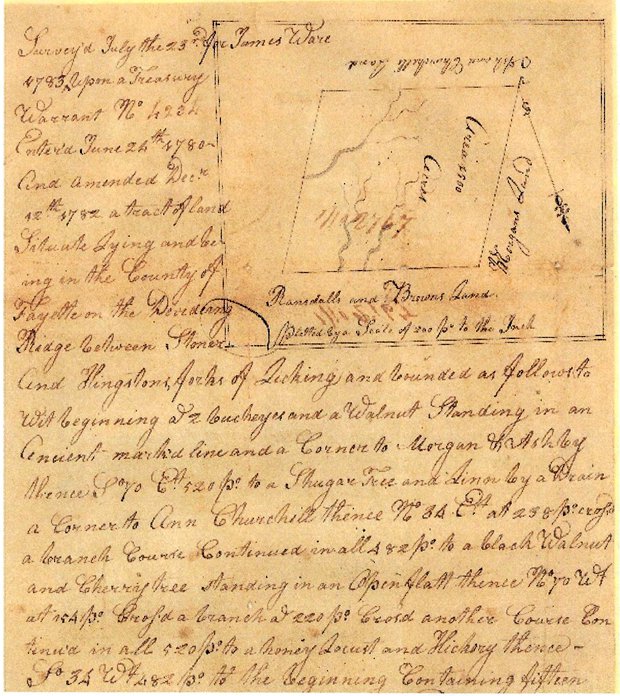 Survey'd July the 23d for James Ware
1783 Upon a Treasury
Warrant No 4234
Enter'd June 24th 1780
and amended Decr
12th 1782 a tract of land
Situate Lying and be
ing in the County of
Fayette on the Deviding
Ridge between Stoner
and Hingstons forks of Licking and bounded as follows to
Wit beginning at 2 buckeyes and a Walnut Standing in an
Ancient mark'd line and a Corner to Morgan & Ashby
thence So 70 Et 520 po to a Shugar Tree and Linn by a Drain
a Corner to Ann Churchill thence No 34 Et at 238 po cross'd
a branch Course Continued in all 482 po to a black Walnut
and Cherry tree standing in an Open flatt thence No 70 Wt
at 154 po Cross'd a branch at 220 po Cros'd another Course Con
tinued in all 520 po to a honey Locust and Hickory thence
So 34 Wt 482 po to the beginning Containing fifteen
Ash and Churchills Land
Area 1500
Acres
Morgans Land
No 2767
Ransdalls and Browns Land
Platted by a Scale of 200 po to the Inch